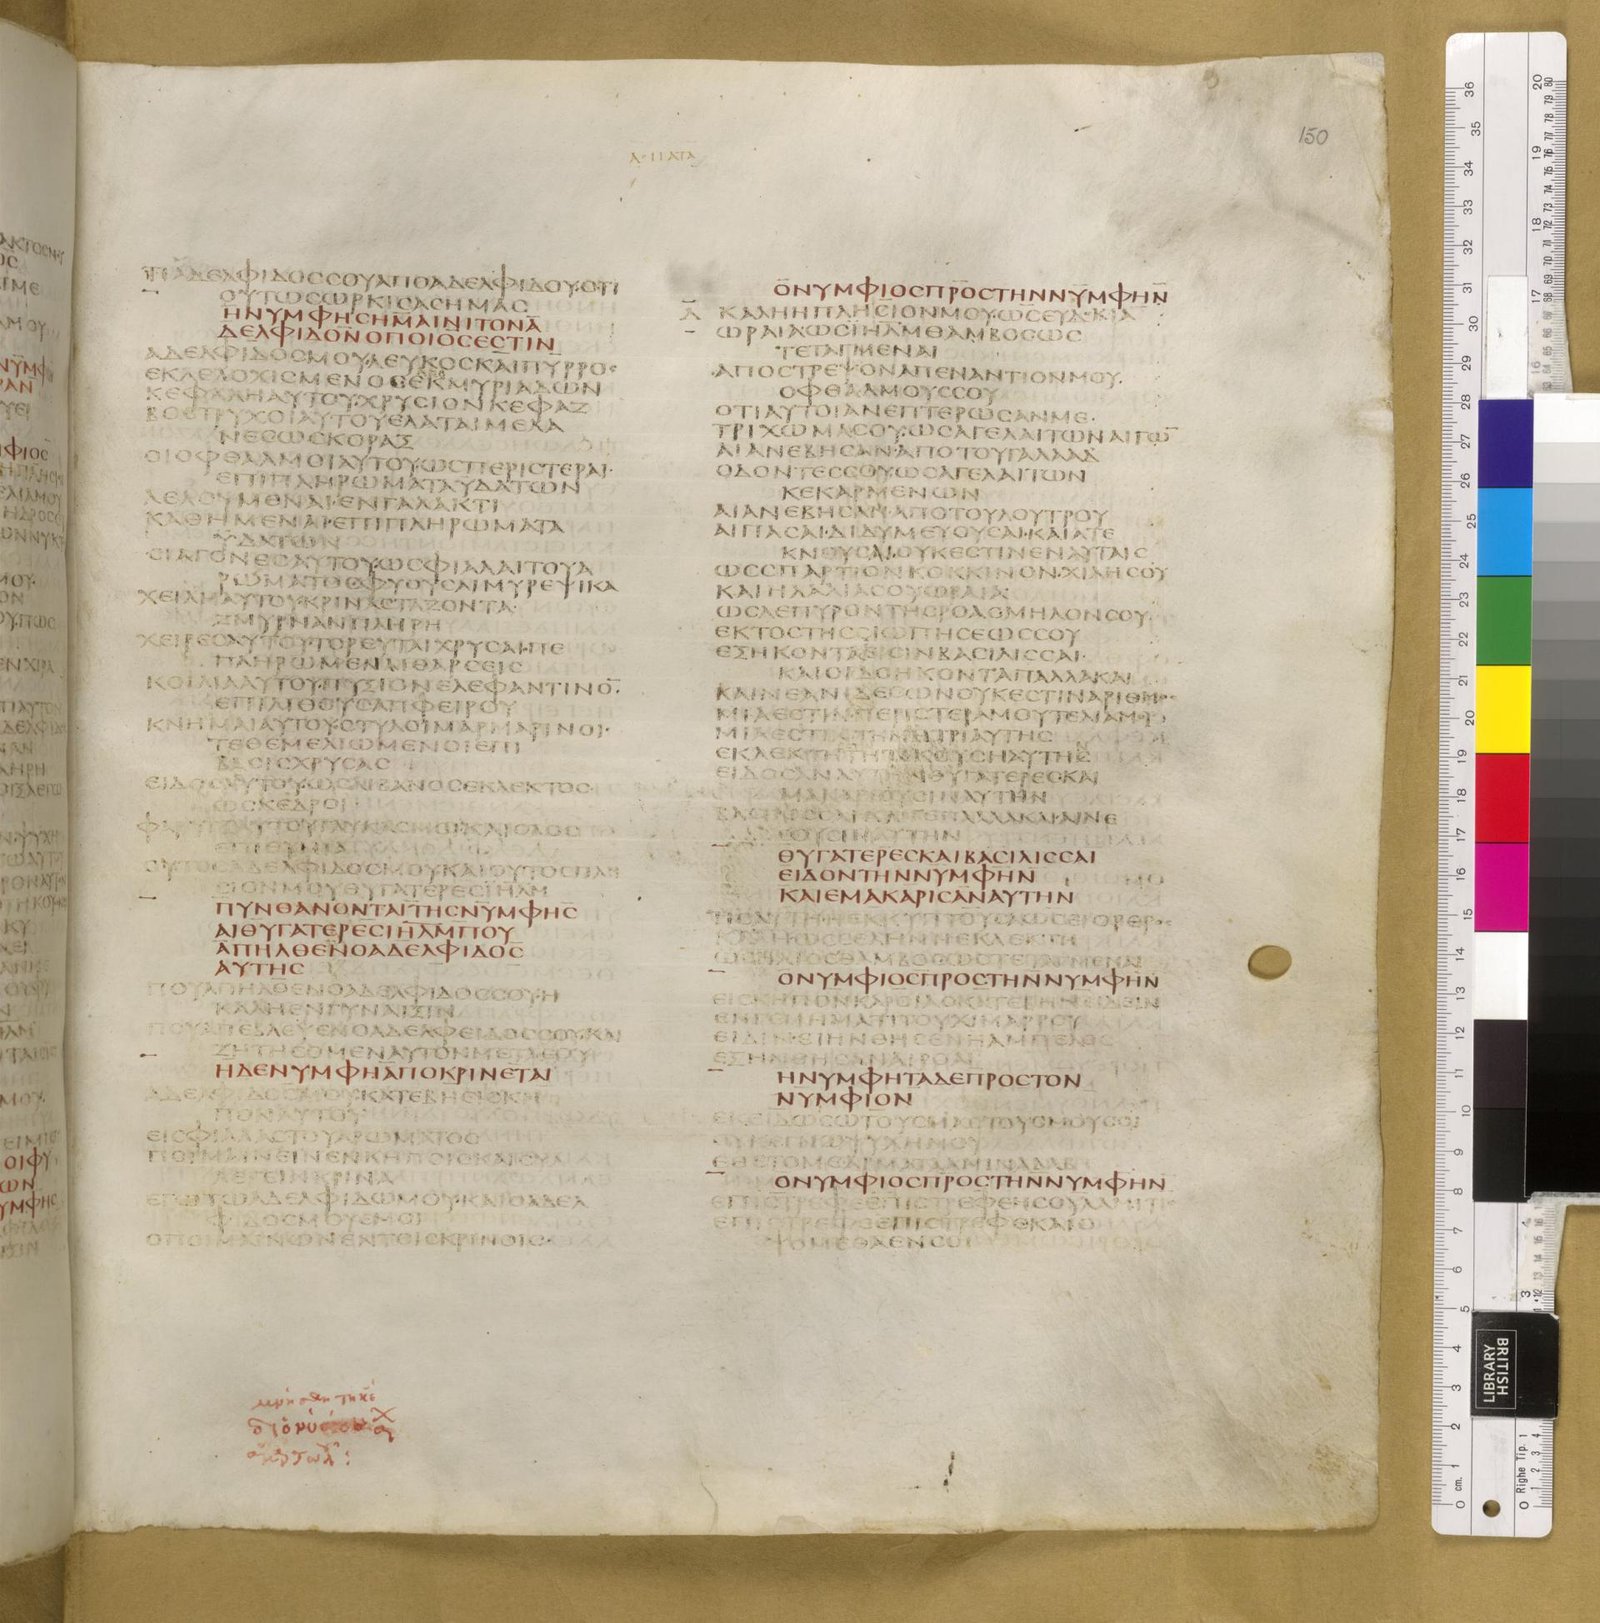 150
ΤΙΑΔΕΛΦΙΔΟССΟΥΑΠΟΑΔΕΛΦΙΔΟΥ·ΟΤΙ
ΟΥΤΩСΩΡΚΙСΑСΗΜΑС
ΗΝΥΜΦΗСΗΜΑΙΝΙΤΟΝΑ
ΔΕΛΦΙΔΟΝΟΠΟΙΟСΕСΤΙΝ
ΑΔΕΛΦΙΔΟСΜΟΥΛΕΥΚΟСΚΑΙΠΥΡΡΟС
ΕΚΛΕΛΟΧΙСΜΕΝΟС
ΚΕΦΑΛΗΑΥΤΟΥΧΡΥСΙΟΝΚΕΦΑΖ
ΒΟСΤΡΥΧΟΙΑΥΤΟΥΕΛΑΤΑΙΜΕΛΑ
ΝΕСΩСΚΟΡΑΞ
ΟΙΟΦΘΑΛΜΟΙΑΥΤΟΥ·ΩСΠΕΡΙСΤΕΡΑΙ·
ΕΠΙΠΛΗΡΩΜΑΤΑΥΔΑΤΩΝ
ΛΕΛΟΥΜΕΝΑΙ·ΕΝΓΑΛΑΚΤΙ
ΚΑΘΗΜΕΝΑΙ·ΕΠΙΠΛΗΡΩΜΑΤΑ
ΥΔΑΤΩΝ
СΙΑΓΟΝΕСΑΥΤΟΥ·ΩСΦΙΑΛΑΙΤΟΥΑ
ΡΩΜΑΤΟСΦΥΟΥСΑΙΜΥΡΕΨΙΚΑ
ΧΕΙΛΗΑΥΤΟΥ·ΚΡΙΝΑСΤΑΖΟΝΤΑ·
ΖΜΥΡΝΑΝΠΛΗΡΗ
ΧΕΙΡΕСΑΥΤΟΥΤΟΡΕΥΤΑΙΧΡΥСΑΙ·ΠΕ
ΠΛΗΡΩΜΕΝΑΙΘΑΡСΕΙС
ΚΟΙΛΙΑΑΥΤΟΥ·ΠΥΞΙΟΝΕΛΕΦΑΝΤΙΝΟ̅·
ΕΠΙΛΙΘΟΥСΑΠΦΕΙΡΟΥ
ΚΝΗΜΑΙΑΥΤΟΥ·СΤΥΛΟΙΜΑΡΜΑΡΙΝΟΙ·
ΤΕΘΕΜΕΛΙΩΜΕΝΟΙΕΠΙ
ΒΑСΙСΧΡΥСΑС
ΕΙΔΟСΑΥΤΟΥ·ΩСΛΙΒΑΝΟСΕΚΛΕΚΤΟС
ΩСΚΕΔΡΟΙ
ΕΠΙΘΥΜΙΑ
ΟΥΤΟСΑΔΕΛΦΙΔΟСΜΟΥΚΑΙΟΥΤΟСΠΛΗ
СΙΟΝΜΟΥΘΥΓΑΤΕΡΕСΙΗΛΜ
ΠΥΝΘΑΝΟΝΤΑΙΤΗСΝΥΜΦΗС
ΑΙΘΥΓΑΤΕΡΕСΙΗΛΜΠΟΥ
ΑΠΗΛΘΕΝΟΑΔΕΛΦΙΔΟС
ΑΥΤΗС
ΠΟΥΑΠΗΛΘΕΝΟΑΔΕΛΦΙΔΟССΟΥ·Η
ΚΑΛΗΕΝΓΥΝΑΙΞΙΝ
ΠΟΥΑΠΕΒΛΕΨΕΝΟΑΔΕΛΦΕΙΔΟССΟΥ·ΚΑΙ
ΖΗΤΗСΟΜΕΝΑΥΤΟΝΜΕΤΑСΟΥ
ΗΔΕΝΥΜΦΗΑΠΟΚΡΙΝΕΤΑΙ
ΑΔΕΛΦΙΔΟСΜΟΥ·ΚΑΤΕΒΗΕΙСΚΗ
ΠΟΝΑΥΤΟΥ
ΕΙСΦΙΑΛΑСΤΟΥΑΡΩΜΑΤΟС
ΠΟΙΜΑΙΝΕΙΝΕΝΚΗΠΟΙСΚΑΙСΥΛ
ΛΕΓΕΙΝΚΡΙΝΑ
ΕΓΩΤΩΑΔΕΛΦΙΔΩΜΟΥ·ΚΑΙΟΑΔΕΛ
ΦΙΔΟСΜΟΥΕΜΟΙ
ΟΠΟΙΜΑΙΝΩΝΕΝΤΟΙСΚΡΙΝΟΙС·
ΟΝΥΜΦΙΟСΠΡΟСΤΗΝΝΥΜΦΗΝ
Λ̅ ΚΑΛΗΗΠΛΗСΙΟΝΜΟΥ·ΩСΕΥΔΟΚΙΑ
ΩΡΑΙΑΩСΙΗΛΜΘΑΜΒΟСΩС
ΤΕΤΑΓΜΕΝΑΙ
ΑΠΟСΤΡΕΨΟΝΑΠΕΝΑΝΤΙΟΝΜΟΥ·
ΟΦΘΑΛΜΟΥССΟΥ
ΟΤΙΑΥΤΟΙΑΝΕΠΤΕΡΩСΑΝΜΕ·
ΤΡΙΧΩΜΑСΟΥ·ΩСΑΓΕΛΑΙΤΩΝΑΙΓΩ̅
ΑΙΑΝΕΒΗСΑΝ·ΑΠΟΤΟΥΓΑΛΑΑΔ
ΟΔΟΝΤΕССΟΥ·ΩСΑΓΕΛΑΙΤΩΝ
ΚΕΚΑΡΜΕΝΩΝ
ΑΙΑΝΕΒΗСΑΝ·ΑΠΟΤΟΥΛΟΥΤΡΟΥ
ΑΙΠΑСΑΙ·ΔΙΔΥΜΕΥΟΥСΑΙ·ΚΑΙΑΤΕ
ΚΝΟΥСΑ·ΟΥΚΕСΤΙΝΕΝΑΥΤΑΙС
ΩССΠΑΡΤΙΟΝΚΟΚΚΙΝΟΝ·ΧΙΛΗСΟΥ
ΚΑΙΗΛΑΛΙΑСΟΥΩΡΑΙΑ
ΩСΛΕΠΥΡΟΝΤΗСΡΟΑСΜΗΛΟΝСΟΥ
ΕΚΤΟСΤΗССΙΩΠΗСΕΩССΟΥ
ΕΞΗΚΟΝΤΑΕΙСΙΝΒΑСΙΛΙССΑΙ·
ΚΑΙΟΓΔΟΗΚΟΝΤΑΠΑΛΛΑΚΑΙ
ΚΑΙΝΕΑΝΙΔΕСΩΝΟΥΚΕСΤΙΝΑΡΙΘΜΟС
ΜΙΑΕСΤΙΝ·ΠΕΡΙСΤΕΡΑΜΟΥΤΕΛΙΑΜΟΥ
ΜΙΑΕСΤΙΤΗΜΗΤΡΙΑΥΤΗС
ΕΚΛΕΚΤΗΤΗΤΕΚΟΥСΗΑΥΤΗΣ
ΕΙΔΟСΑΝΑΥΤΗΝΘΥΓΑΤΕΡΕСΚΑΙ
ΜΑΚΑΡΙΟΥСΙΝΑΥΤΗΝ
ΒΑСΙΛΙССΑΙΚΑΙΓΕΠΑΛΛΑΚΑΙ·ΑΙΝΕ
СΟΥСΙΝΑΥΤΗΝ
ΘΥΓΑΤΕΡΕСΚΑΙΒΑСΙΛΙССΑΙ
ΕΙΔΟΝΤΗΝΝΥΜΦΗΝ
ΚΑΙΕΜΑΚΑΡΙСΑΝΑΥΤΗΝ
ΤΙСΑΥΤΗΗΕΚΚΥΠΤΟΥСΑΩСΕΙΟΡΘΡΟС
ΚΑΛΗΩССΕΛΗΝΗΕΚΛΕΚΤΗ
ΘΑΜΒΟСΩСΤΕΤΑΓΜΕΝΑΙ
ΟΝΥΜΦΙΟСΠΡΟСΤΗΝΝΥΜΦΗΝ
ΕΙСΚΗΠΟΝΚΑΡΟΙΑСΚΑΤΕΒΗΝΕΙΔΕΙΝ
ΕΝΓΕΝΗΜΑΤΙΤΟΥΧΙΜΑΡΡΟΥ
ΕΙΔΙΝ·ΕΙΗΝΘΗСΕΝΗΑΜΠΕΛΟС
ΕΞΗΝΘΗСΑΝΑΙΡΟΑΙ
ΗΝΥΜΦΗΤΑΔΕΠΡΟСΤΟΝ
ΝΥΜΦΙΟΝ
ΕΚΕΙΔΩСΩΤΟΥСΜΑСΤΟΥСΜΟΥСΟΙ
ΟΥΚΕΓΝΩΨΥΧΗΜΟΥ
ΕΘΕΤΟΜΕΑΡΜΑΤΑΑΜΙΝΑΔΑΒ
ΟΝΥΜΦΙΟСΠΡΟСΤΗΝΝΥΜΦΗΝ
ΕΠΙСΤΡΕΦΕΕΠΙСΤΡΕΦΕΗСΟΥΛΑΜΙΤΙС
ΕΠΙСΤΡΕΦΕΕΠΙСΤΡΕΦΕΚΑΙΟ
ΨΟΜΕΘΑΕΝСΟΙ
BRITISH
LIBRARY
Righe Tip. 1
cm.